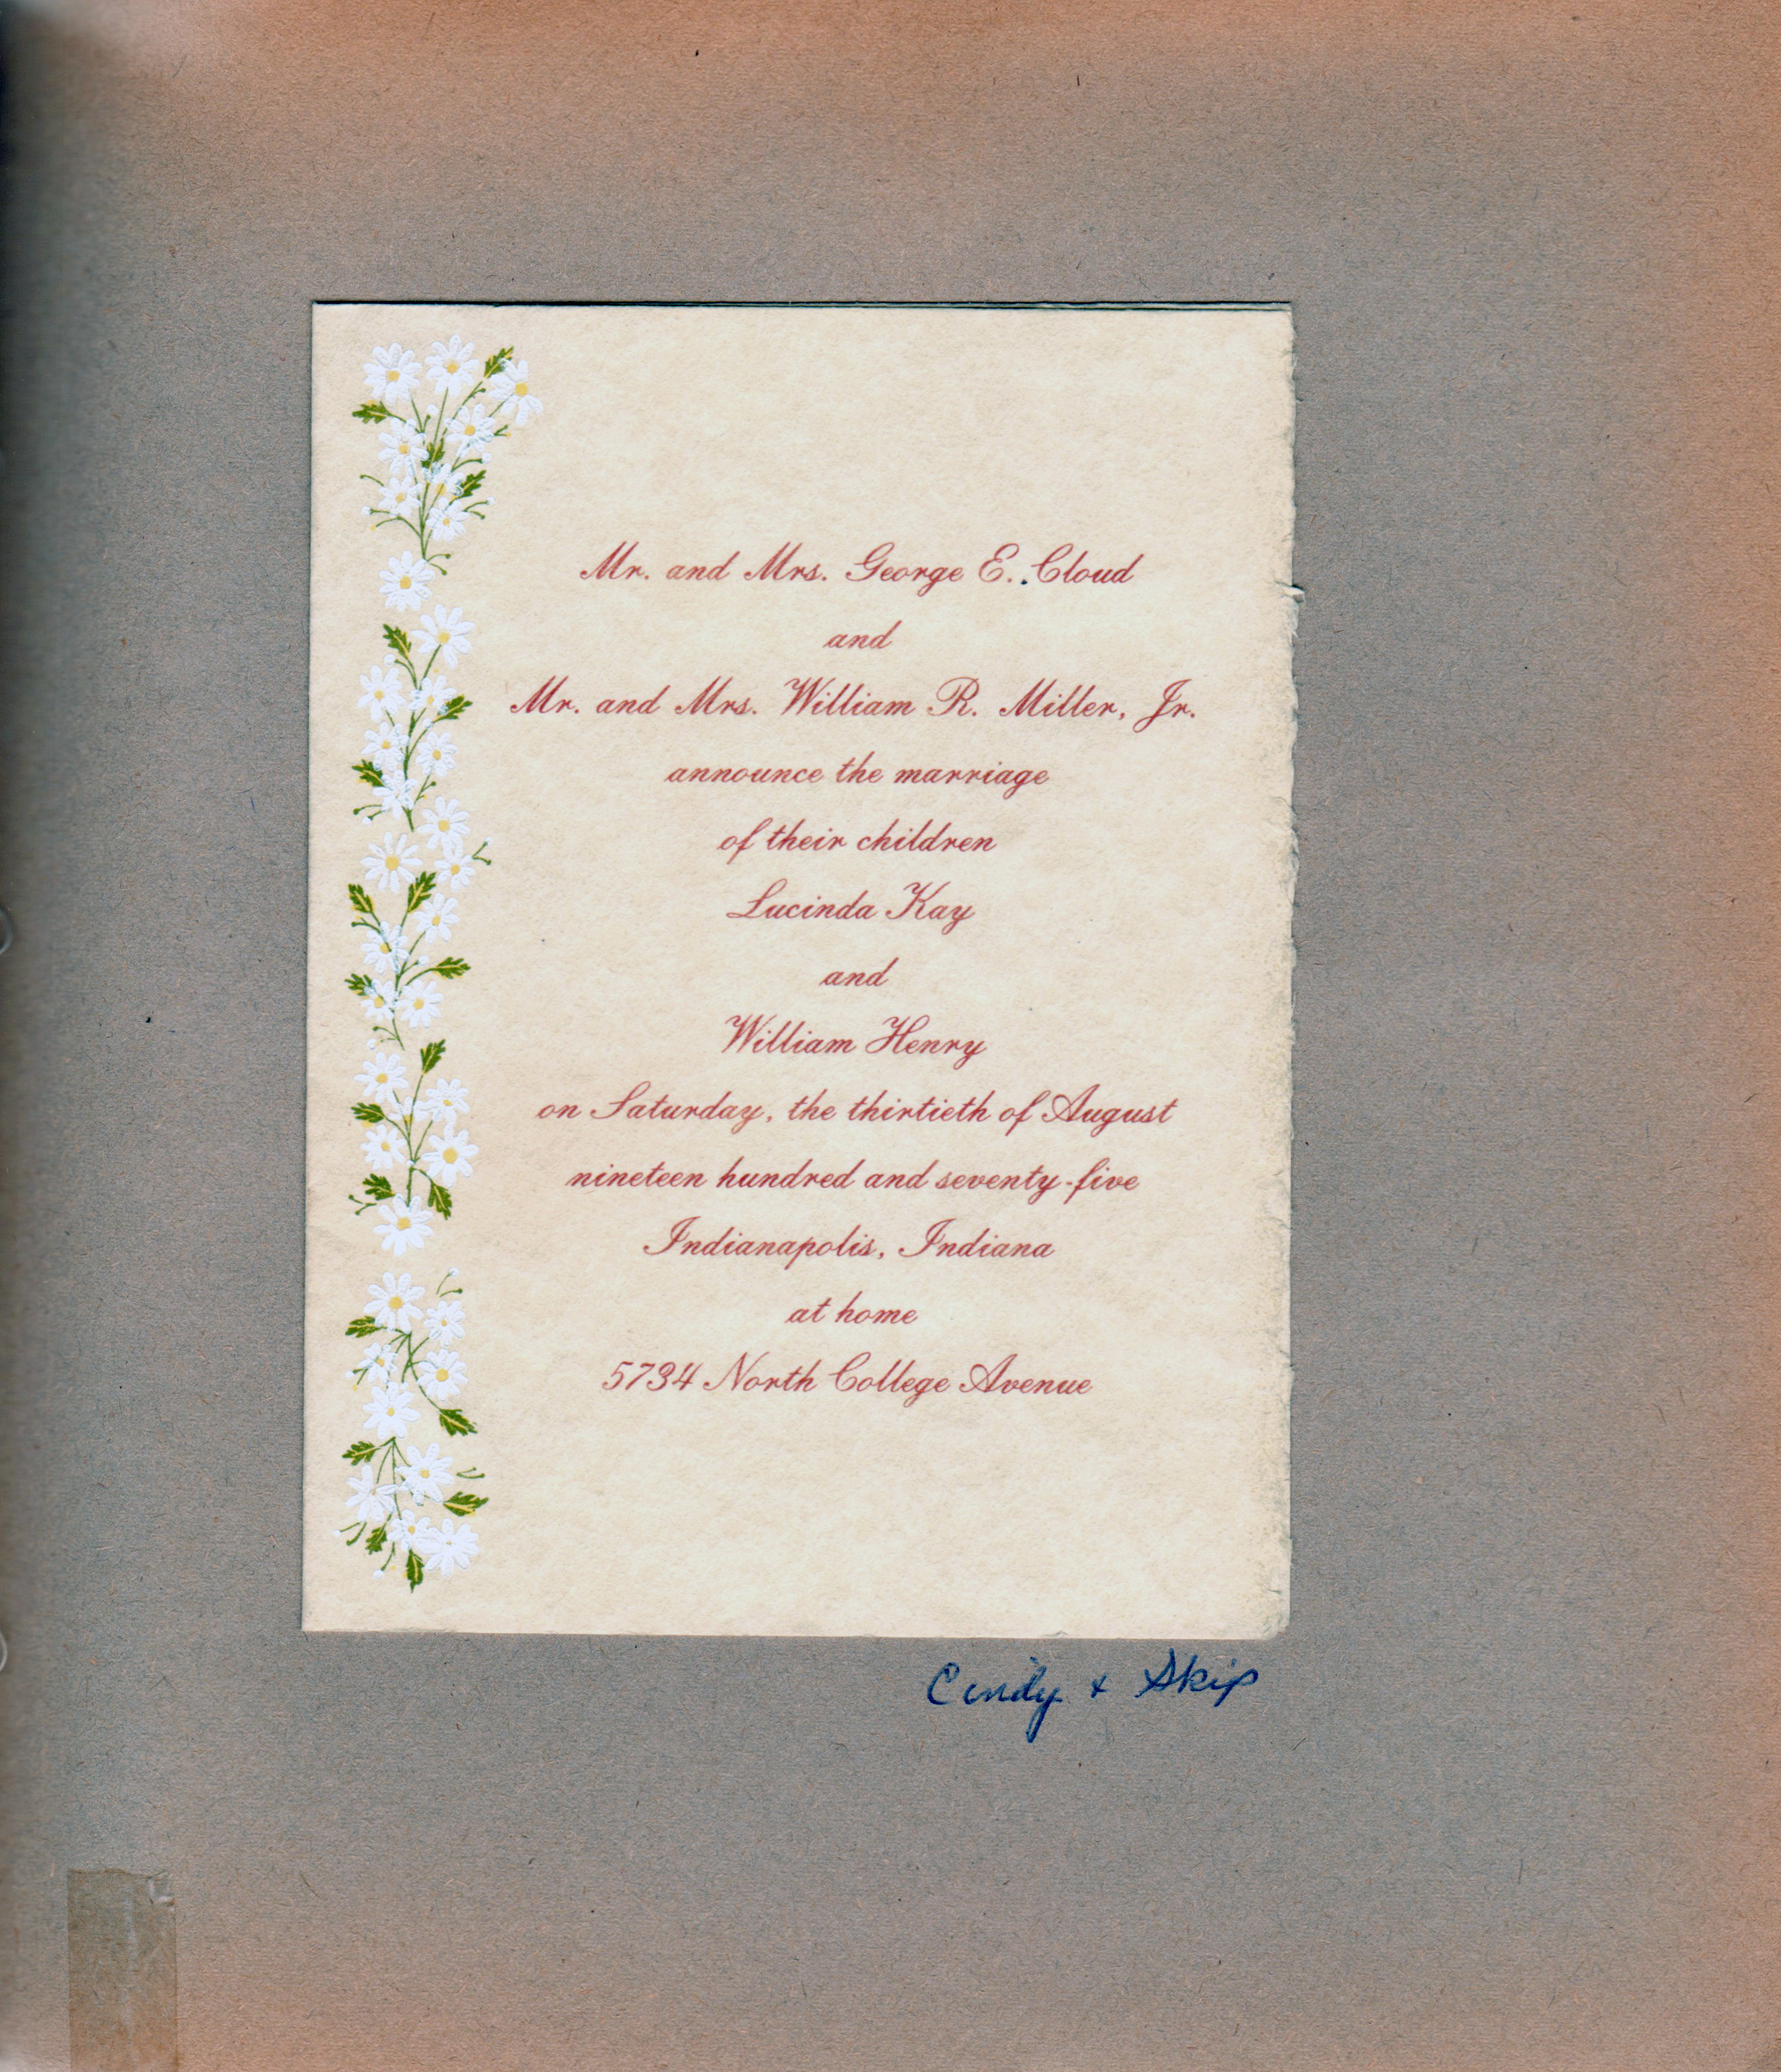 Mr. and Mrs. George E. Cloud
and
Mr. and Mrs. William R. Miller, Jr.
announce the marriage
of their children
Lucinda Kay
and
William Henry
on Saturday, the thirtieth of August
nineteen hundred and seventy-five
Indianapolis, Indiana
at home
5734 North College Avenue
Cindy + Skip